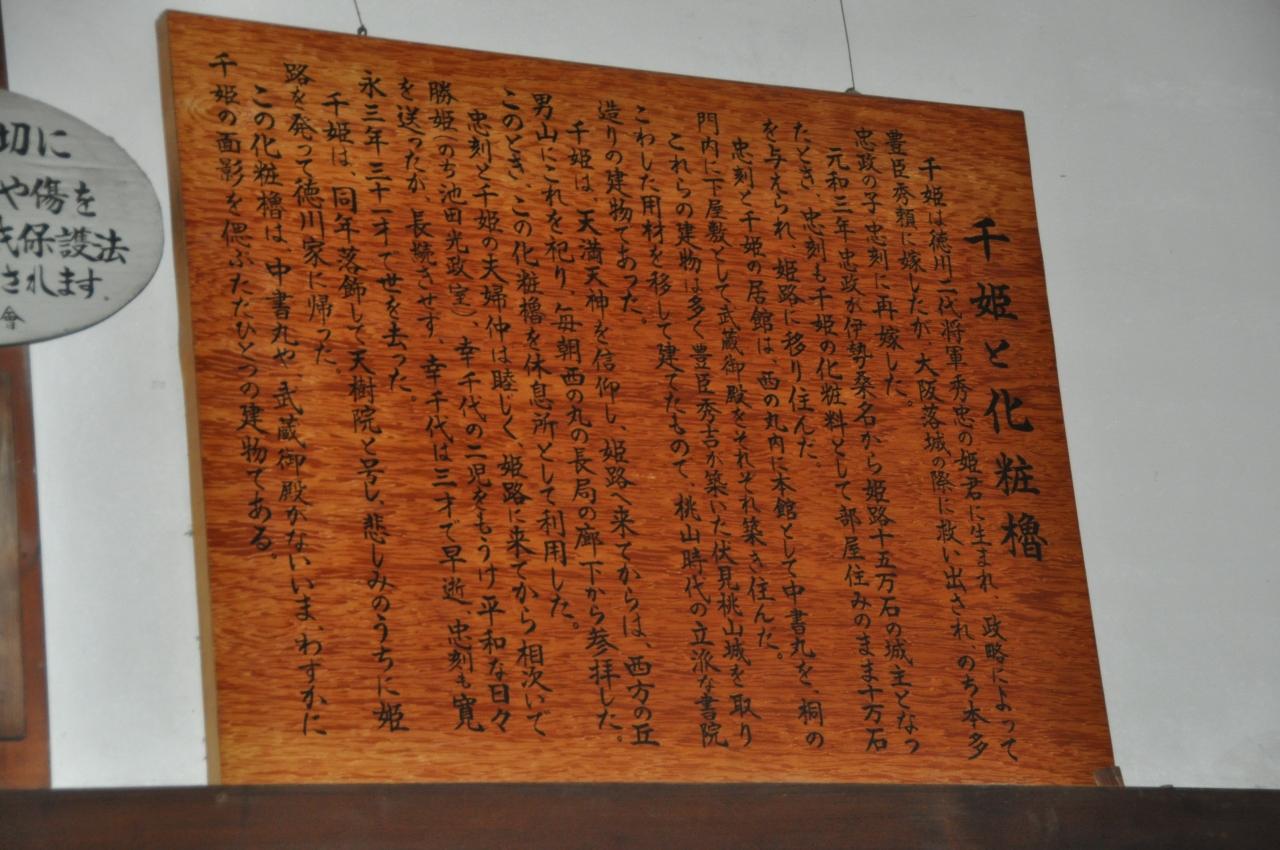 千姫と化粧櫓
千姫は徳川二代将軍秀忠の姫君に生まれ、政略によって
豊臣秀頼に嫁したが、大阪落城の際に救い出され、のち本多
忠政の子忠刻に再嫁した。
元和三年忠政が伊勢桑名から姫路十五万石の城主となっ
たとき、忠刻も千姫の化粧料として部屋住みのまま十万石
を与えられ、姫路に移り住んだ。
忠刻と千姫の居館は、西の丸内に本館として中書丸を、桐の
門内に下屋敷として武蔵御殿をそれぞれ築き住んだ。
これらの建物は多く豊臣秀吉が築いた伏見桃山城を取り
こわした用材を移して建てたもので、桃山時代の立派な書院
造りの建物であった。
千姫は、天満天神を信仰し、姫路へ来てからは、西方の丘
男山にこれを祀り、毎朝西の丸の長局の廊下から参拝した。
このとき、この化粧櫓を休息所として利用した。
忠刻と千姫の夫婦仲は睦じく、姫路に来てから相次いで
勝姫(のち池田光政室)、幸千代の二児をもうけ平和な日々
を送ったが、長続きせず、幸千代は三才で早逝、忠刻も寛
永三年三十一才で世を去った。
千姫は、同年落飾して天樹院と号し、悲しみのうちに姫
路を発って徳川家に帰った。
この化粧櫓は、中書丸や武蔵御殿がないいま、わずかに
千姫の面影を偲ぶただひとつの建物である。
切に
や傷を
保護法
されます。
會